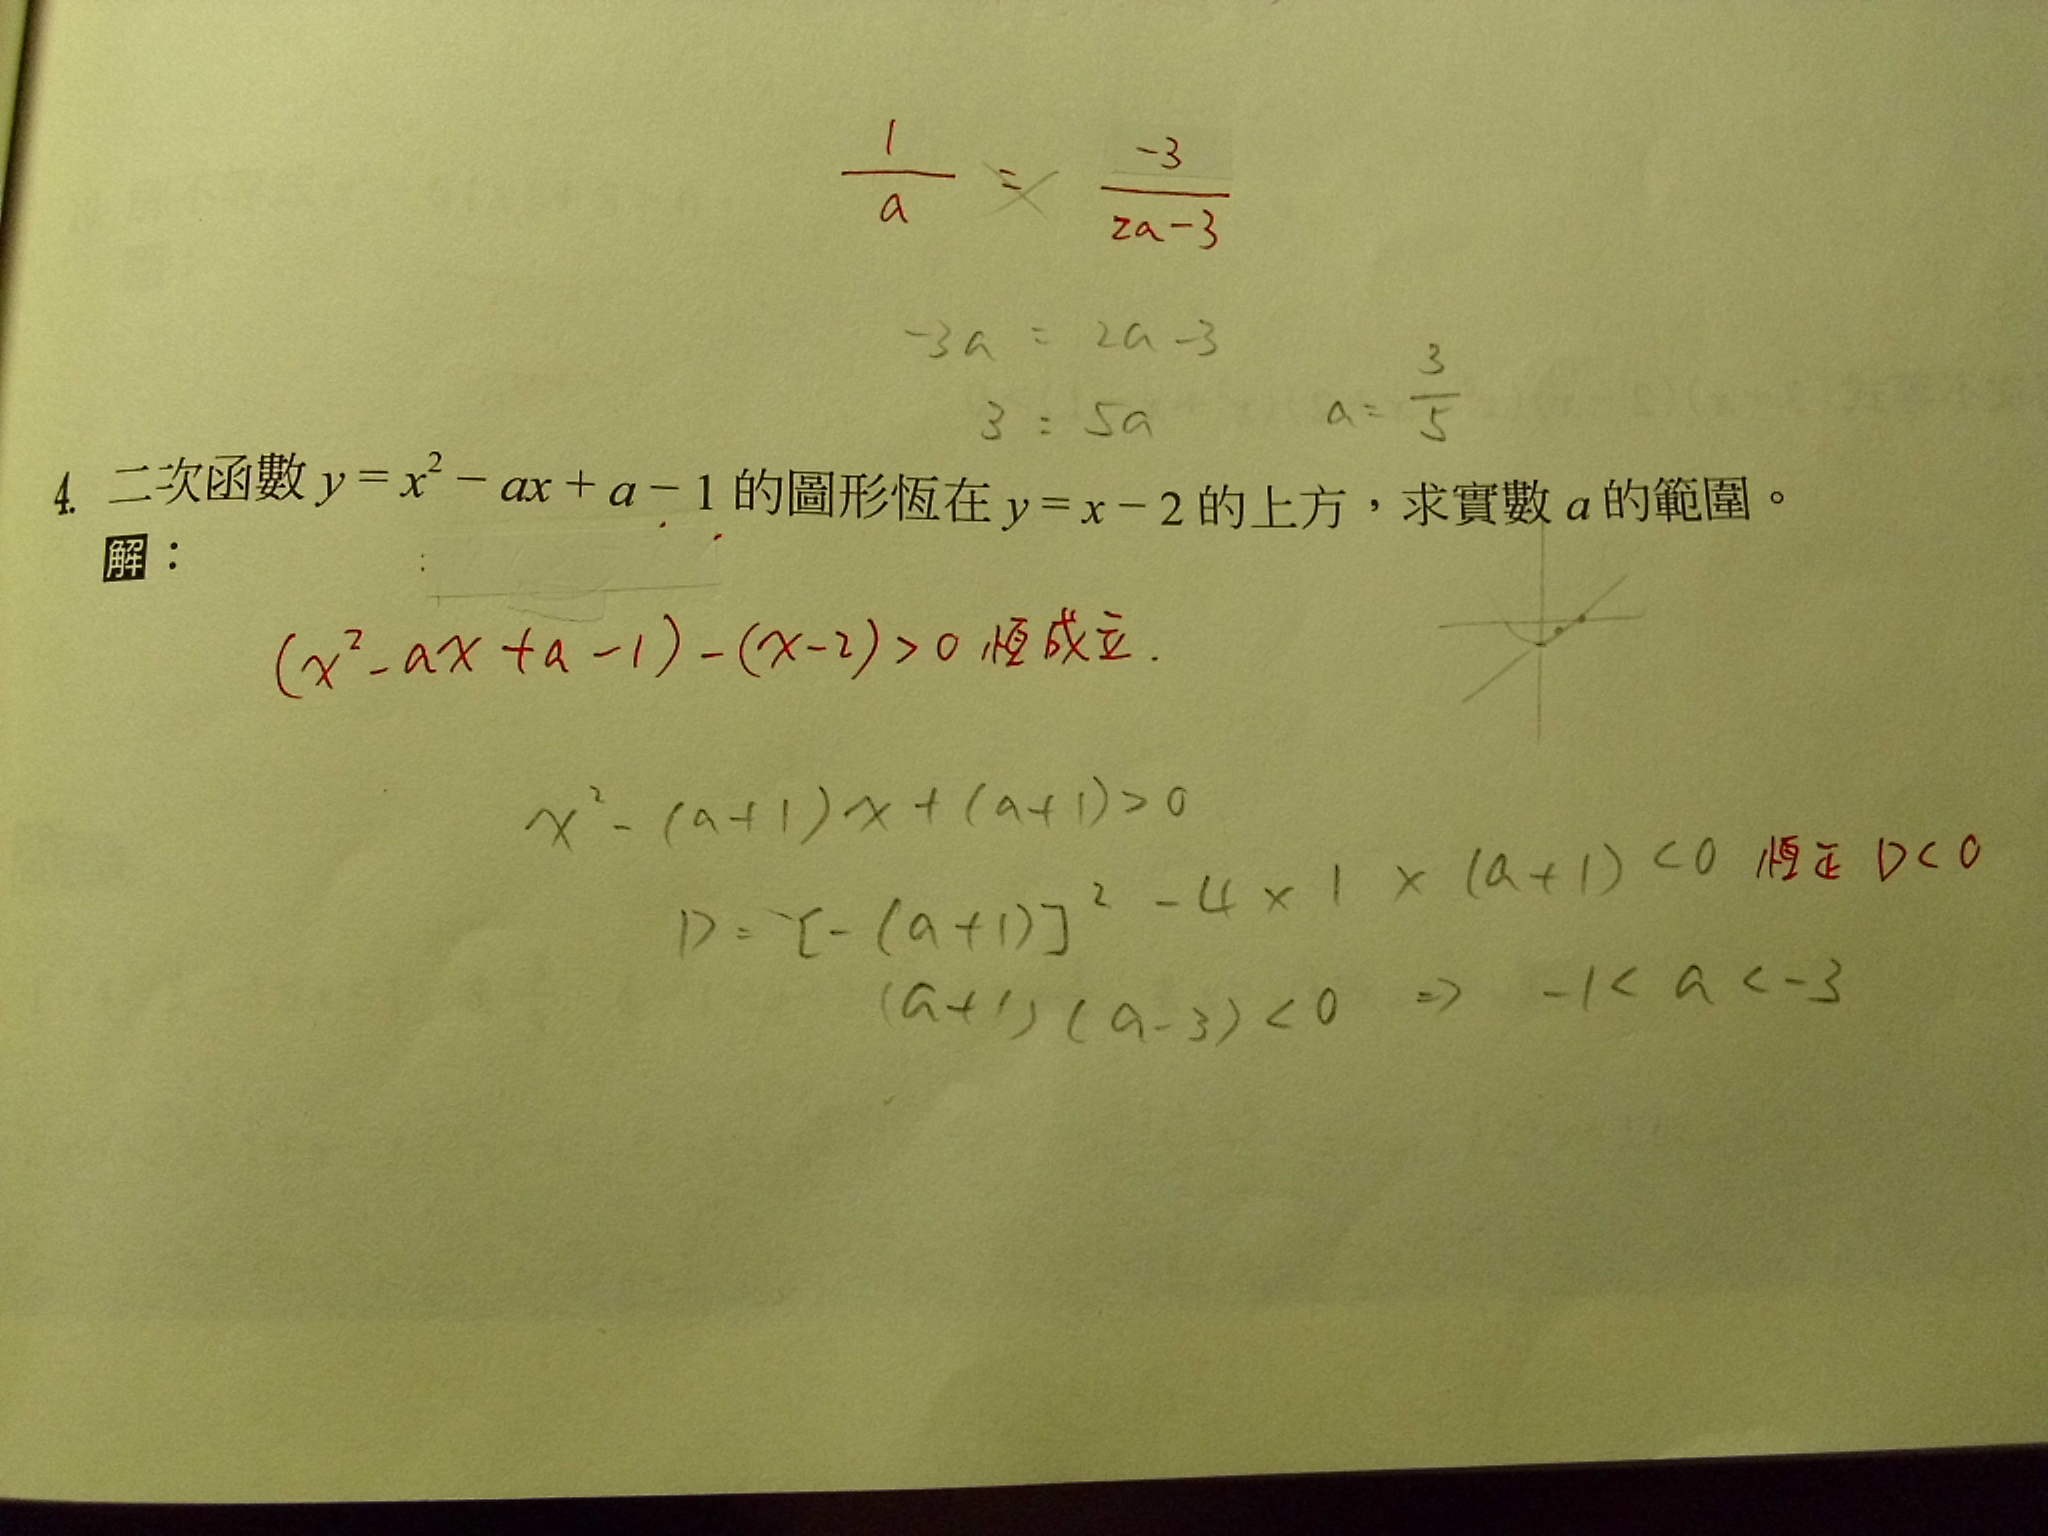 1/a = -3/(2a-3)
-3a = 2a-3
3 = 5a a = 3/5
4. 二次函數 y = x² − ax + a − 1 的圖形恆在 y = x − 2 的上方，求實數 a 的範圍。
解：
(x²-ax+a-1)-(x-2)>0 恆成立.
x²-(a+1)x+(a+1)>0
D=[-(a+1)]²-4×1×(a+1)<0 恆正 D<0
(a+1)(a-3)<0 => -1<a<-3